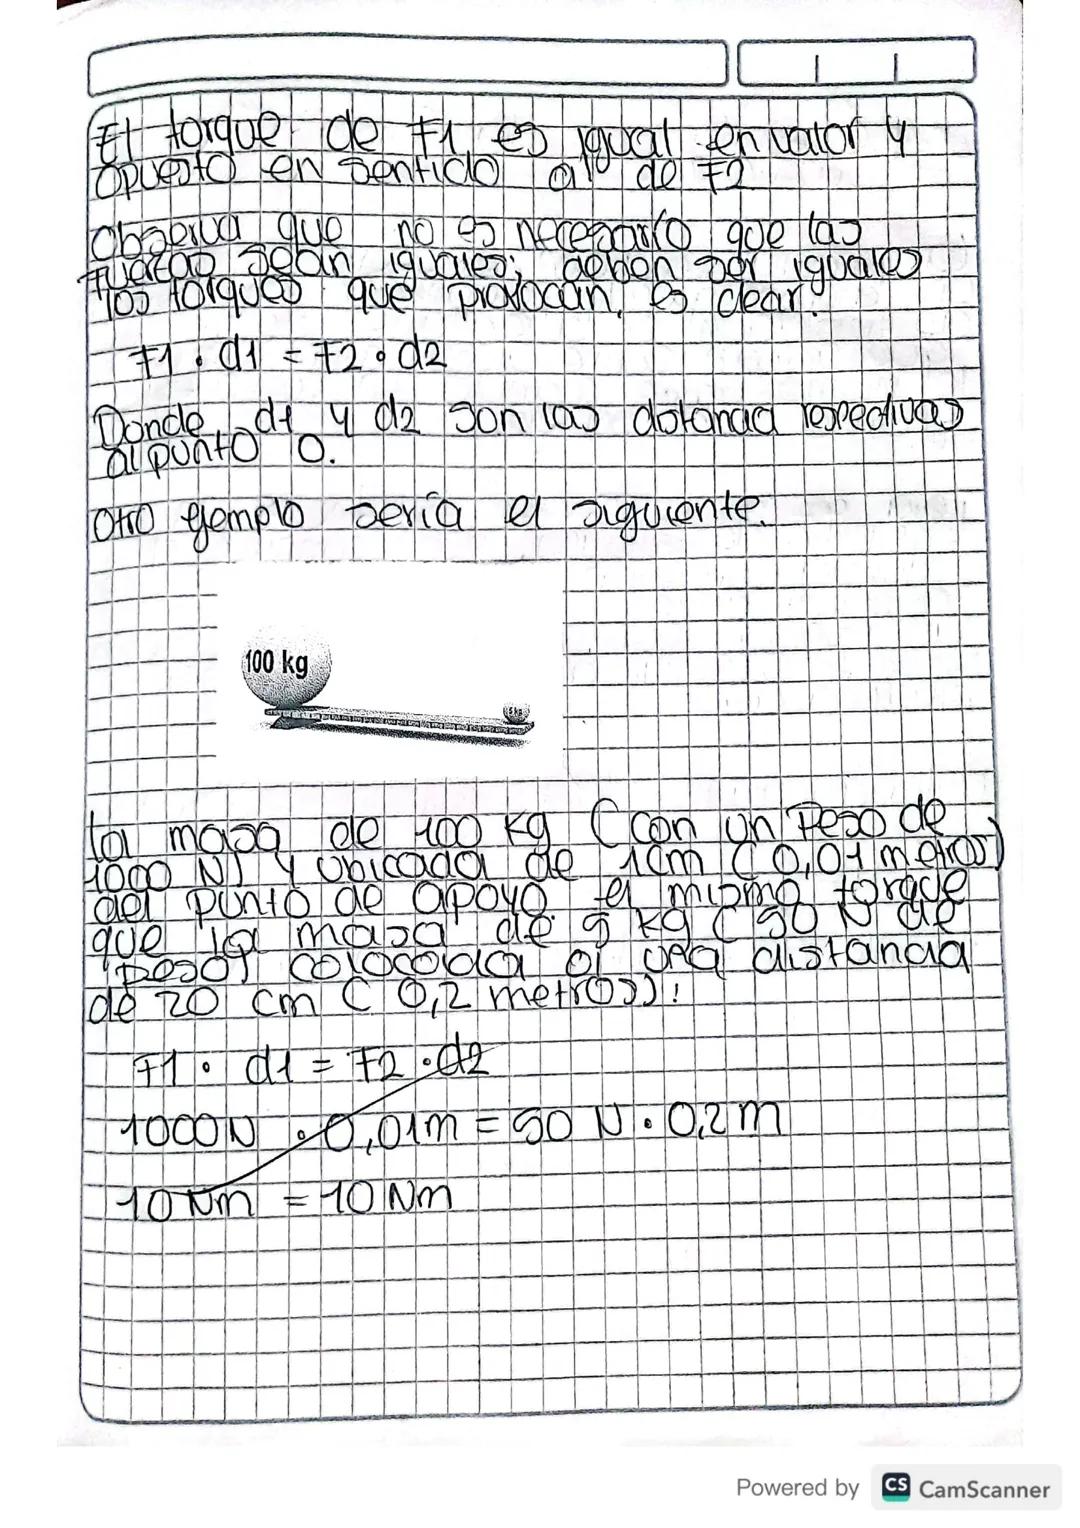 El torque de F1 es igual en valor y
opuesto en sentido al de F2
Observa que no es necesario que las
fuerzas sean iguales; deben ser iguales
los torques que provocan, es decir:
F1 · d1 = F2 · d2
Donde d1 y d2 son las distancia respectivas
al punto O.
Otro ejemplo sería el siguiente.
100 kg
5 kg
La masa de 100 kg (con un peso de
1000 N) y ubicada de 1cm (0,01 metros)
del punto de apoyo el mismo torque
que la masa de 5 kg (50 N de
peso) colocada a una distancia
de 20 cm (0,2 metros)):
F1 · d1 = F2 · d2
1000N · 0,01m = 50 N · 0,2 m
10 Nm = 10 Nm
Powered by CS CamScanner